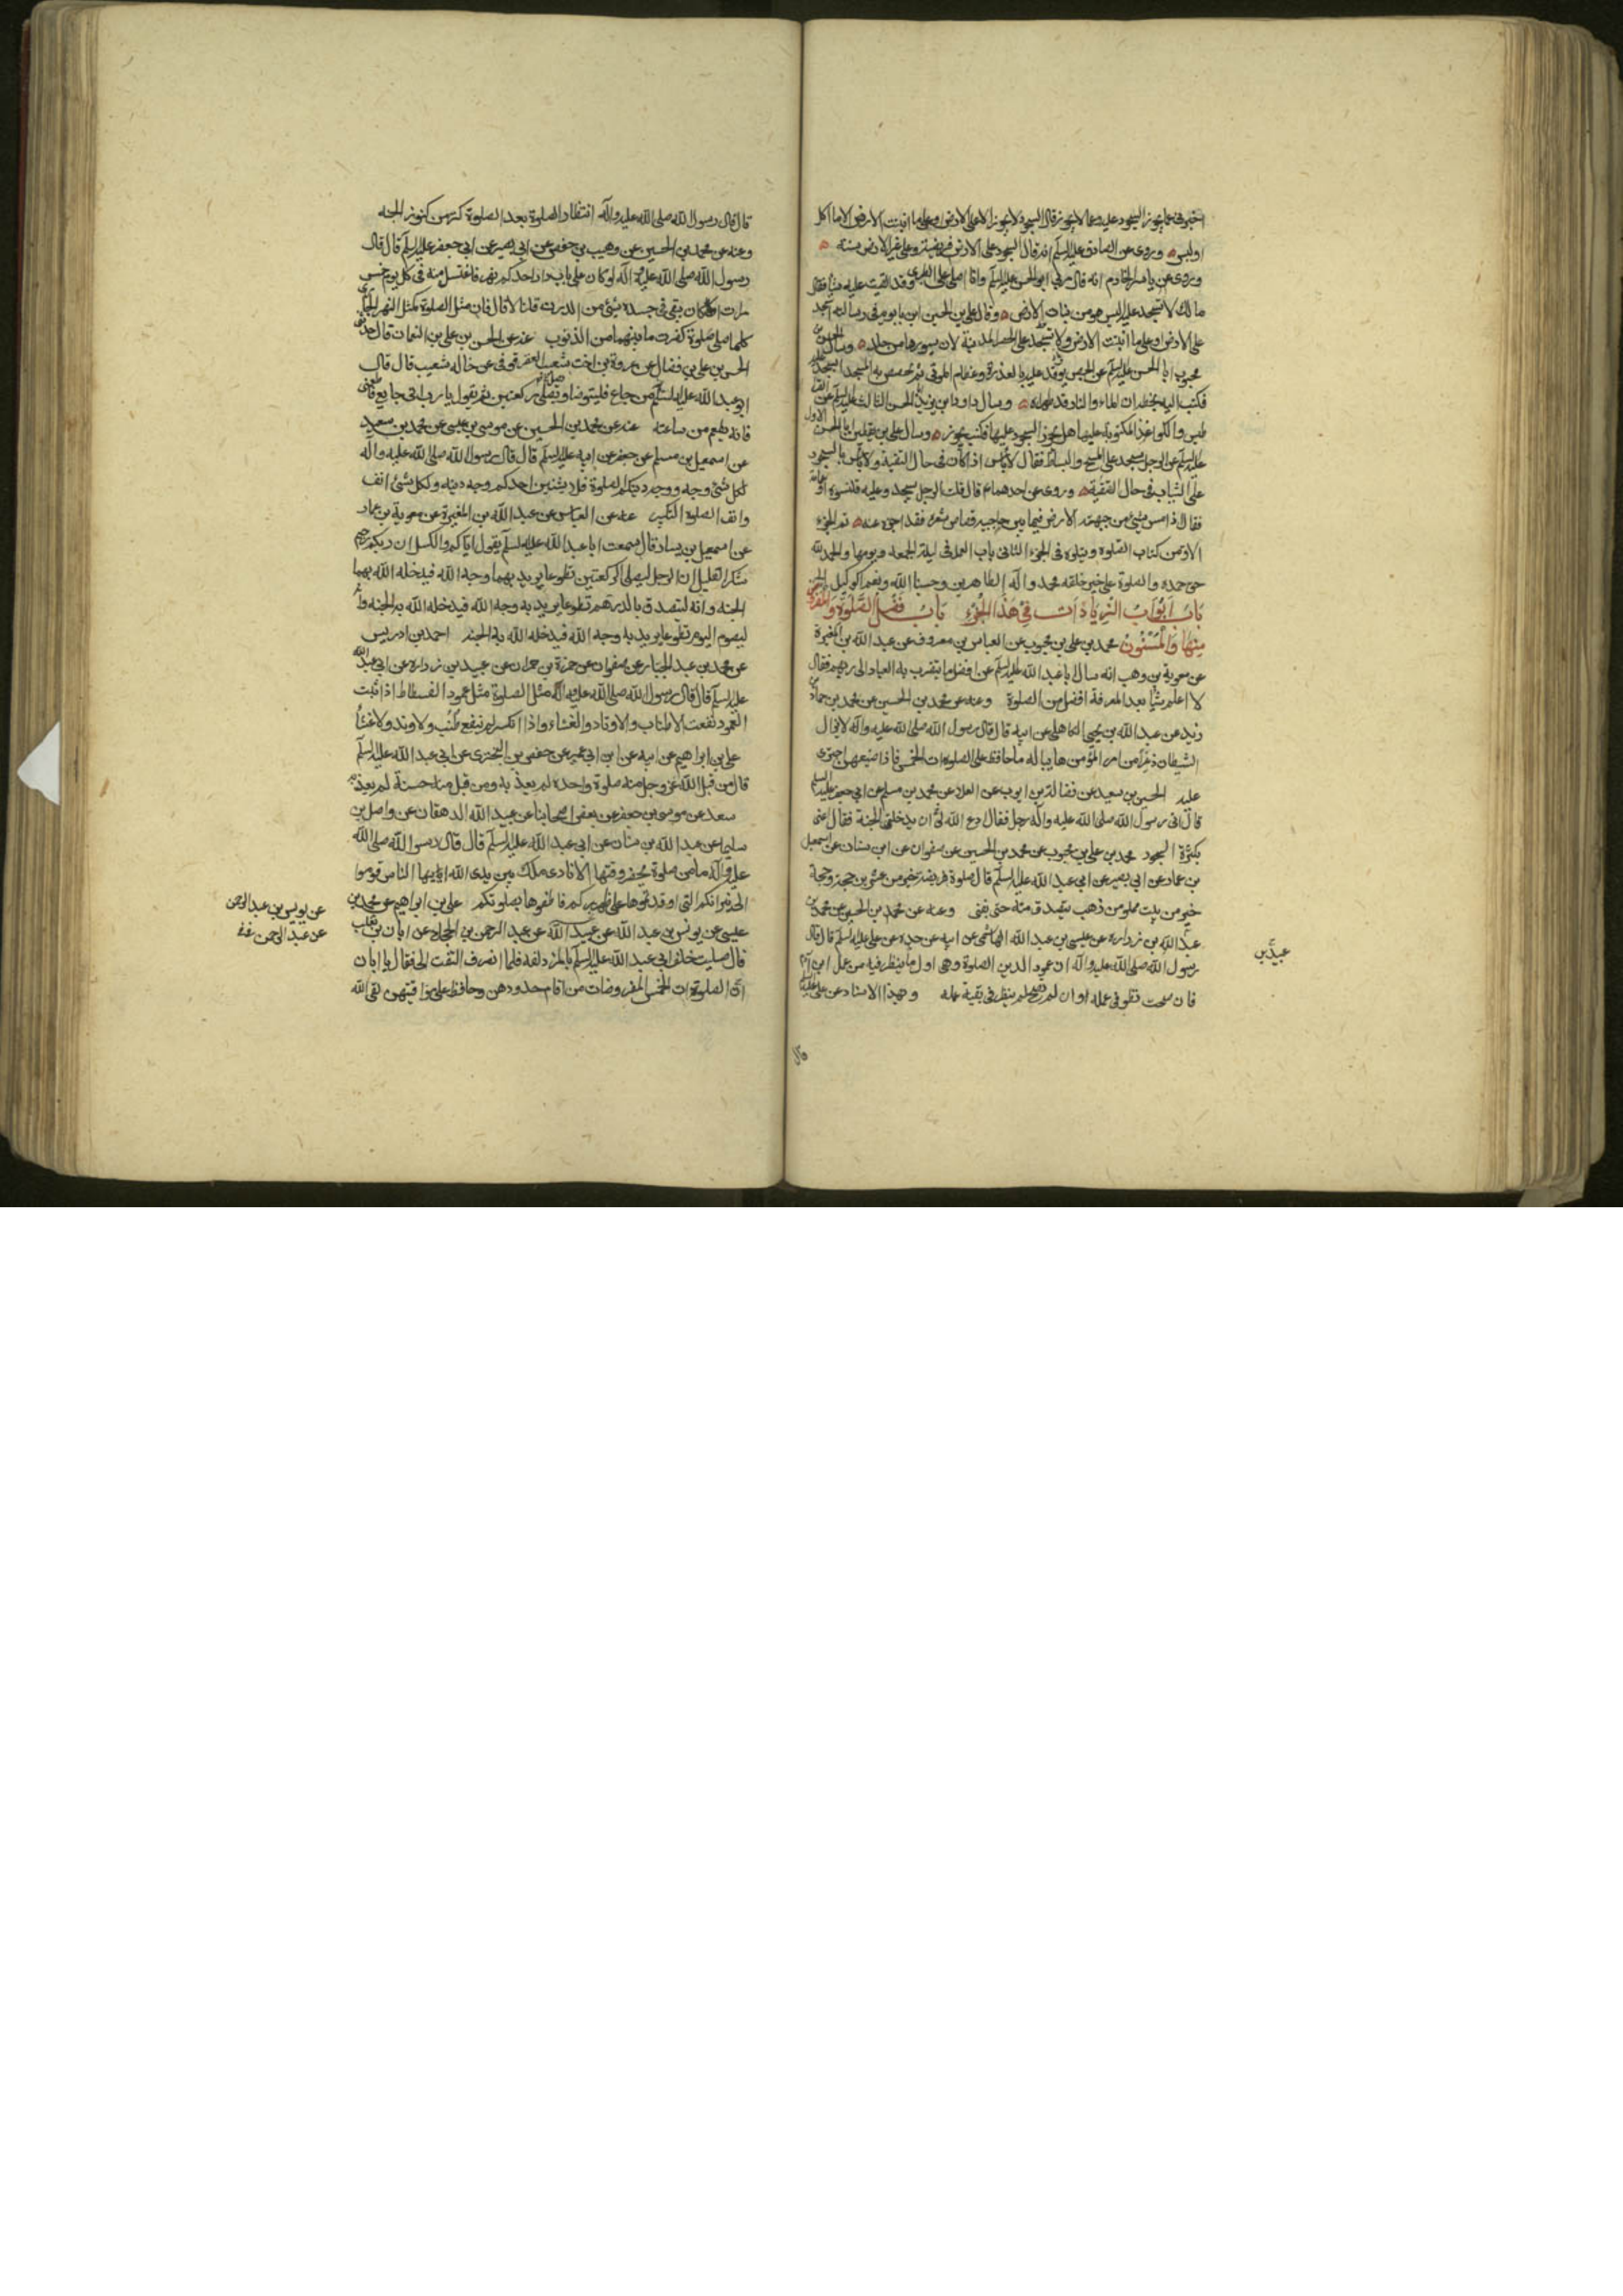 اخبرنی عما یجوز السجود علیه وعما لا یجوز قال السجود لا یجوز الا علی الارض وعلی ما انبتت الارض الا ما اکل
او لبس وروی عن الصادق علیه السلم انه قال السجود علی الارض فریضة وعلی غیر الارض سنة
وروی عن یاسر الخادم انه قال مر بی ابو الحسن علیه السلم وانا اصلی علی الطبری وقد القیت علیه شیئا فقال
مالک لا تسجد علیه الیس هو من نبات الارض وقال علی بن الحسین ابن بابویه فی رسالته اسجد
علی الارض او علی ما انبتت الارض ولا تسجد علی الحصر المدنیة لان سیورها من جلد وسال الحسن بن
محبوب ابا الحسن علیه السلم عن الجص یوقد علیه بالعذرة وعظام الموتی ثم یجصص به المسجد ایسجد علیه
فکتب الیه بخطه ان الماء والنار قد طهراه وسال داود بن یزید ابا الحسن الثالث علیه السلم عن القرا
طیس والکواغذ المکتوبة علیها هل یجوز السجود علیها فکتب یجوز وسال علی بن یقطین ابا الحسن الاول
علیه السلم عن الرجل یسجد علی المسح والبساط فقال لا باس اذا کان فی حال التقیة ولا باس بالسجود
علی الثیاب فی حال التقیة وروی عن احدهما ع قال قلت الرجل یسجد وعلیه قلنسوة او عمامة
فقال اذا مس شیء من جبهته الارض فیما بین حاجبیه وقصاص شعره فقد اجزء عنه تم الجزء
الاول من کتاب الصلوة ویتلوه فی الجزء الثانی باب العمل فی لیلة الجمعه ویومها والحمد لله
حق حمده والصلوة علی خیر خلقه محمد واله الطاهرین وحسبنا الله ونعم الوکیل
باب ابواب الزیادات فی هذا الجزء باب فضل الصلوة والمفروض
منها والمسنون محمد بن علی بن محبوب عن العباس بن معروف عن عبد الله بن المغیرة
عن معویة بن وهب انه سال ابا عبد الله علیه السلم عن افضل ما یتقرب به العباد الی ربهم فقال
لا اعلم شیئا بعد المعرفة افضل من الصلوة وعنه عن محمد بن الحسین عن محمد بن حماد بن
زید عن عبد الله بن یحیی الکاهلی عن ابیه قال قال رسول الله صلی الله علیه واله لا یزال
الشیطان ذعرا من امر المؤمن هایبا له ما حافظ علی الصلوات الخمس فاذا ضیعهن اجتری
علیه الحسین بن سعید عن فضالة بن ایوب عن العلاء عن محمد بن مسلم عن ابی جعفر علیه السلم
قال اتی رسول الله صلی الله علیه واله رجل فقال ادع الله لی ان یدخلنی الجنة فقال اعنی
بکثرة السجود محمد بن علی بن محبوب عن محمد بن الحسین عن صفوان عن ابن سنان عن اسمعیل
بن عماد عن ابی بصیر عن ابی عبد الله علیه السلم قال صلوة فریضة خیر من عشرین حجة وحجة
خیر من بیت مملو من ذهب یتصدق منه حتی یفنی وعنه عن محمد بن الحسین عن محمد بن
عبد الله بن زراره عن عیسی بن عبد الله الهاشمی عن ابیه عن جده عن علی علیه السلم قال قال
رسول الله صلی الله علیه واله ان عمود الدین الصلوة وهی اول ما ینظر فیه من عمل ابن آدم
فان صحت نظر فی عمله وان لم تصح لم ینظر فی بقیة عمله وبهذا الاسناد عن علی علیه السلم
قال
قال قال رسول الله صلی الله علیه واله انتظار الصلوة بعد الصلوة کنز من کنوز الجنه
وعنه عن محمد بن الحسین عن وهیب بن حفص عن ابی بصیر عن ابی جعفر علیه السلم قال قال
رسول الله صلی الله علیه واله لو کان علی باب دار احدکم نهر فاغتسل منه فی کل یوم خمس
مرات اکان یبقی فی جسده شیء من الدرن قلنا لا قال فان مثل الصلوة کمثل النهر الجاری
کلما صلی صلوة کفرت ما بینهما من الذنوب عنه عن الحسن بن علی بن النعمان قال حدثنی
الحسن بن علی بن فضال عن عروة بن اخت شعیب العقرقوفی عن خاله شعیب قال قال
ابو عبد الله علیه السلم من جاع فلیتوضا ویصلی رکعتین ثم یقول یا رب انی جایع فاطعمنی
فانه یطعم من ساعته عنه عن محمد بن الحسین عن موسی بن عیسی عن محمد بن سعید
عن اسمعیل بن مسلم عن جعفر عن ابیه علیه السلم قال قال رسول الله صلی الله علیه واله
لکل شیء وجه ووجه دینکم الصلوة فلا یشینن احدکم وجه دینه ولکل شیء انف
وانف الصلوة التکبیر عنه عن العباس عن عبد الله بن المغیرة عن معویة بن عمار
عن اسمعیل بن یسار قال سمعت ابا عبد الله علیه السلم یقول ایاکم والکسل ان ربکم رحیم
یشکر القلیل ان الرجل لیصلی الرکعتین تطوعا یرید بهما وجه الله فیدخله الله بهما
الجنه وانه لیتصدق بالدرهم تطوعا یرید به وجه الله فیدخله الله به الجنه وانه
لیصوم الیوم تطوعا یرید به وجه الله فیدخله الله به الجنه احمد بن ادریس
عن محمد بن عبد الجبار عن صفوان عن حمزة بن حمران عن عبید بن زراره عن ابی عبد الله
علیه السلم قال قال رسول الله صلی الله علیه واله مثل الصلوة مثل عمود الفسطاط اذا ثبت
العمود نفعت الاطناب والاوتاد والغشاء واذا انکسر لم ینفع طنب ولا وتد ولا غشاء
علی بن ابراهیم عن ابیه عن ابن ابی عمیر عن حفص بن البختری عن ابی عبد الله علیه السلم
قال من قبل الله عز وجل منه صلوة واحده لم یعذبه ومن قبل منه حسنة لم یعذبه
سعد عن موسی بن جعفر عن بعض اصحابنا عن عبید الله الدهقان عن واصل بن
سلیمان عن عبد الله بن سنان عن ابی عبد الله علیه السلم قال قال رسول الله صلی الله
علیه واله ما من صلوة یحضر وقتها الا نادی ملک بین یدی الله ایها الناس قوموا
الی نیرانکم التی اوقدتموها علی ظهورکم فاطفوها بصلوتکم علی بن ابراهیم عن محمد بن
عیسی عن یونس بن عبد الله عن عبد الله عن عبد الرحمن بن الحجاج عن ابان بن تغلب
قال صلیت خلف ابی عبد الله علیه السلم بالمزدلفه فلما انصرف التفت الی فقال یا ابان
ان الصلوات الخمس المفروضات من اقام حدودهن وحافظ علی مواقیتهن لقی الله
عن یونس بن عبد الرحمن
عن عبد الرحمن